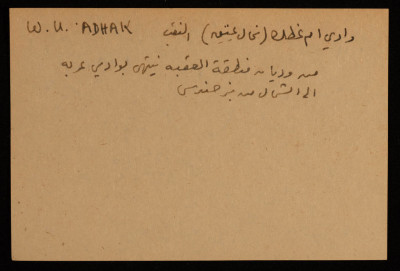 W. U. 'ADHAK وادي ام عظك (شمال عتيقه) النقب
من وديان منطقة العقبه ينتهي بوادي عربه
الى الشمال من بئر حندس